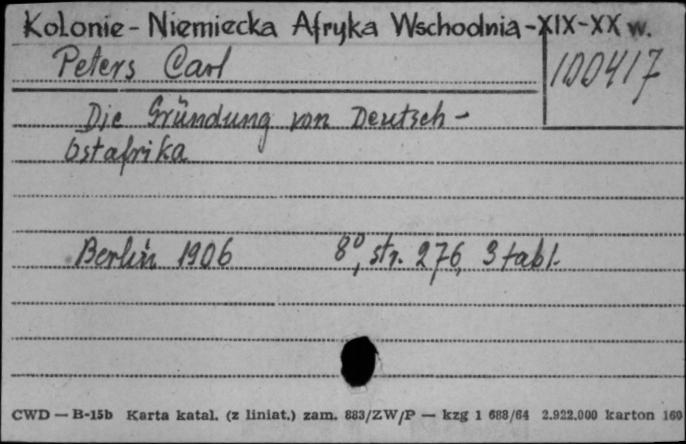 Kolonie - Niemiecka Afryka Wschodnia - XIX-XX w.
Peters Carl
100417
Die Gründung von Deutsch -
Ostafrika
Berlin 1906 8°, str. 276, 3 tabl.
CWD — B-15b Karta katal. (z liniat.) zam. 883/ZW/P — kzg 1 688/64 2.922.000 karton 160